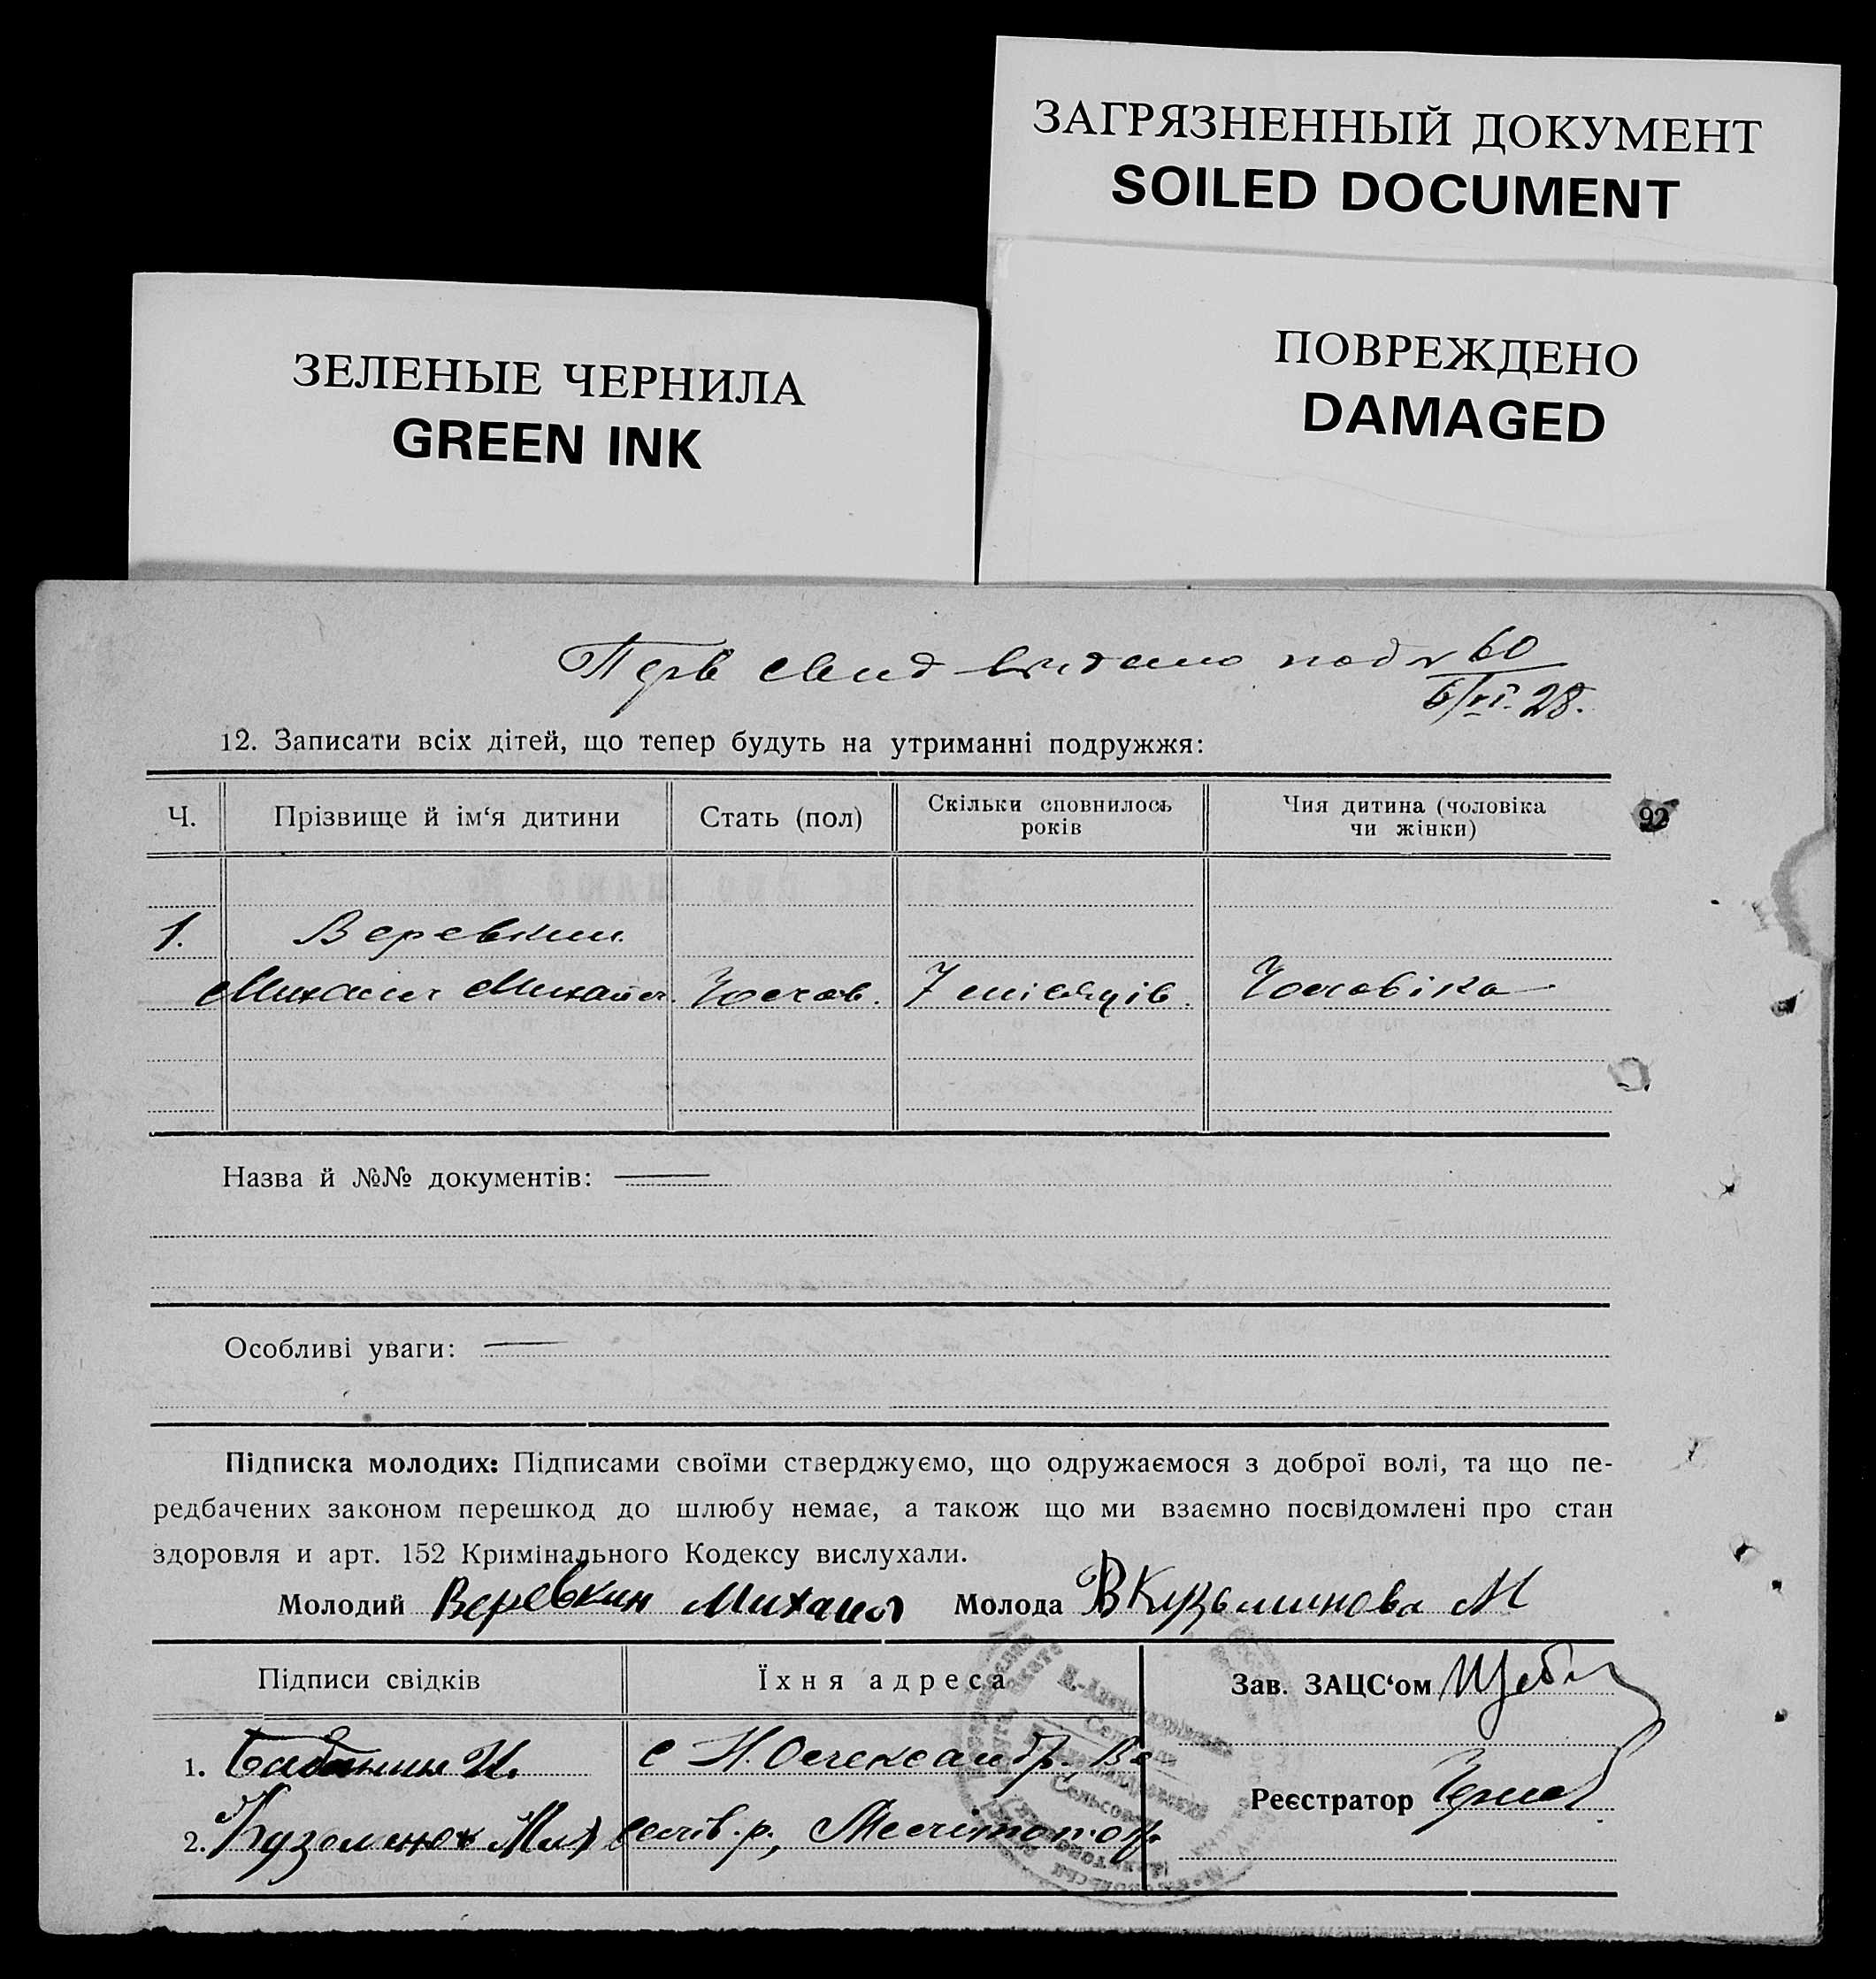 ЗАГРЯЗНЕННЫЙ ДОКУМЕНТ
SOILED DOCUMENT
ПОВРЕЖДЕНО
DAMAGED
ЗЕЛЕНЫЕ ЧЕРНИЛА
GREEN INK
свид видано под № 60
6/VI. 28.
12. Записати всіх дітей, що тепер будуть на утриманні подружжя:
Ч. Прізвище й ім‘я дитини Стать (пол) Скільки сповнилось років Чия дитина (чоловіка чи жінки)
92
1. Веревкин
Михаил Михайл. Чолов. 7 місяців. Чоловіка
Назва й №№ документів: —
Особливі уваги: —
Підписка молодих: Підписами своїми стверджуємо, що одружаємося з доброї волі, та що пе-
редбачених законом перешкод до шлюбу немає, а також що ми взаємно посвідомлені про стан
здоровля и арт. 152 Кримінального Кодексу вислухали.
Молодий Веревкин Михаил Молода В Кузьминова М
Підписи свідків Їхня адреса Зав. ЗАЦС‘ом
1. с Н. Олександр.,
Реєстратор
2. р., Мелітоп. окр.